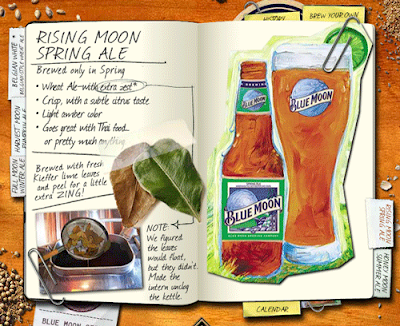 HISTORY
BREW YOUR OWN
RISING MOON
SPRING ALE
Brewed only in Spring
• Wheat Ale with extra zest*
• Crisp, with a subtle citrus taste
• Light amber color
• Goes great with Thai food...
or pretty much anything
Brewed with fresh
Kieffer lime leaves
and peel for a little
extra ZING!
NOTE:
We figured
the leaves
would float,
but they didn't.
Made the
intern unclog
the kettle.
BELGIAN WHITE
BELGIAN STYLE WHEAT ALE
HARVEST MOON
PUMPKIN ALE
FULL MOON
WINTER ALE
BLUE MOON
BLUE MOON
BLUE MOON
RISING MOON
SPRING ALE
HONEY MOON
SUMMER ALE
CALENDAR
BLUE MOON